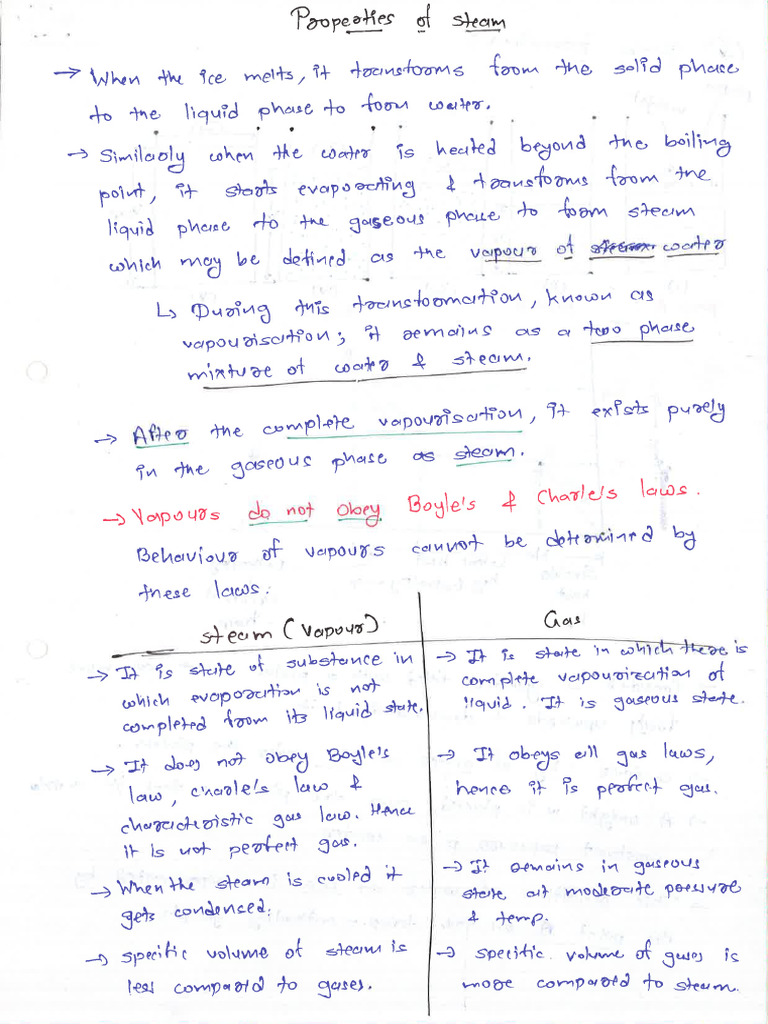 Properties of steam
→ When the ice melts, it transforms from the solid phase
to the liquid phase to form water.
→ Similarly when the water is heated beyond the boiling
point, it starts evaporating & transforms from the
liquid phase to the gaseous phase to form steam
which may be defined as the vapour of steam water
↳ During this transformation, known as
vapourisation; it remains as a two phase
mixture of water & steam.
→ After the complete vapourisation, it exists purely
in the gaseous phase as steam.
→ Vapours do not obey Boyle's & Charle's laws.
Behaviour of vapours cannot be determined by
these laws.
Steam (Vapour)
→ It is state of substance in
which evaporation is not
completed from its liquid state.
→ It does not obey Boyle's
law, Charle's law &
characteristic gas law. Hence
it is not perfect gas.
→ When the steam is cooled it
gets condensed.
→ Specific volume of steam is
less compared to gases.
Gas
→ It is state in which there is
complete vapourization of
liquid. It is gaseous state.
→ It obeys all gas laws,
hence it is perfect gas.
→ It remains in gaseous
state at moderate pressure
& temp.
→ Specific volume of gases is
more compared to steam.